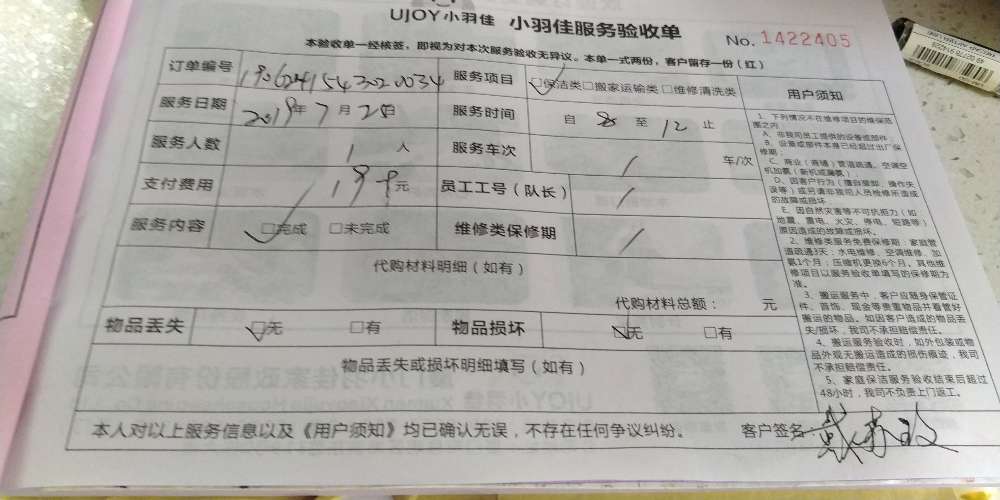 UJOY小羽佳 小羽佳服务验收单
No. 1422405
本验收单一经核签，即视为对本次服务验收无异议。本单一式两份，客户留存一份（红）
订单编号 服务项目 □保洁类□搬家运输类□维修清洗类 用户须知
服务日期 2019年7月20日 服务时间 自 8 至 12 止
服务人数 1 人 服务车次 / 车/次
支付费用 199元 员工工号（队长） /
服务内容 □完成 □未完成 维修类保修期 /
代购材料明细（如有）
代购材料总额： 元
物品丢失 □无 □有 物品损坏 □无 □有
物品丢失或损坏明细填写（如有）
本人对以上服务信息以及《用户须知》均已确认无误，不存在任何争议纠纷。 客户签名：
1、下列情况不在维修项目的维保范
围之内
A、非我司员工提供的设备或部件；
B、设备或部件本身已经超过出厂保
修期；
C、商业（商铺）管道疏通、空调空
机加氨（新机或漏氨）；
D、因客户行为（擅自装卸、操作失
误等）或另请非我司人员检修所造成
的故障或损坏
E、因自然灾害等不可抗拒力（如
地震、雷电、火灾、停电、短路等）
原因造成的故障或损坏。
2、维修类服务免费保修期：家庭管
道疏通3天；水电维修、空调维修、加
氨1个月；压缩机更换6个月。其他维
修项目以服务验收单填写的保修期为
准。
3、搬运服务中，客户应随身保管证
件、首饰、现金等贵重物品并看管好
搬运的物品。如因客户造成的物品丢
失/损坏，我司不承担赔偿责任。
4、搬运服务验收时，如外包装或物
品外观无搬运造成的损伤痕迹，我司
不承担赔偿责任。
5、家庭保洁服务验收结束后超过
48小时，我司不负责上门返工。